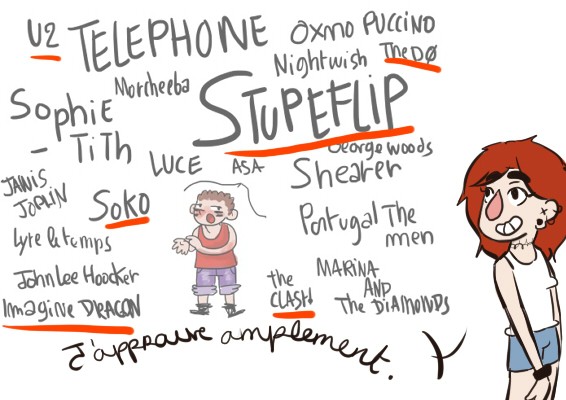 U2
TELEPHONE
Oxmo PUCCINO
Nightwish
The DØ
Morcheeba
STUPEFLIP
SOPHIE
- TiTh
George woods
LUCE
ASA
Shearer
JANIS
JOPLIN
SOKO
Portugal The
men
Lyre le temps
John Lee Hoocker
Imagine DRAGON
the
CLASH
MARINA
AND
The DIAMONDS
J'approuve amplement.